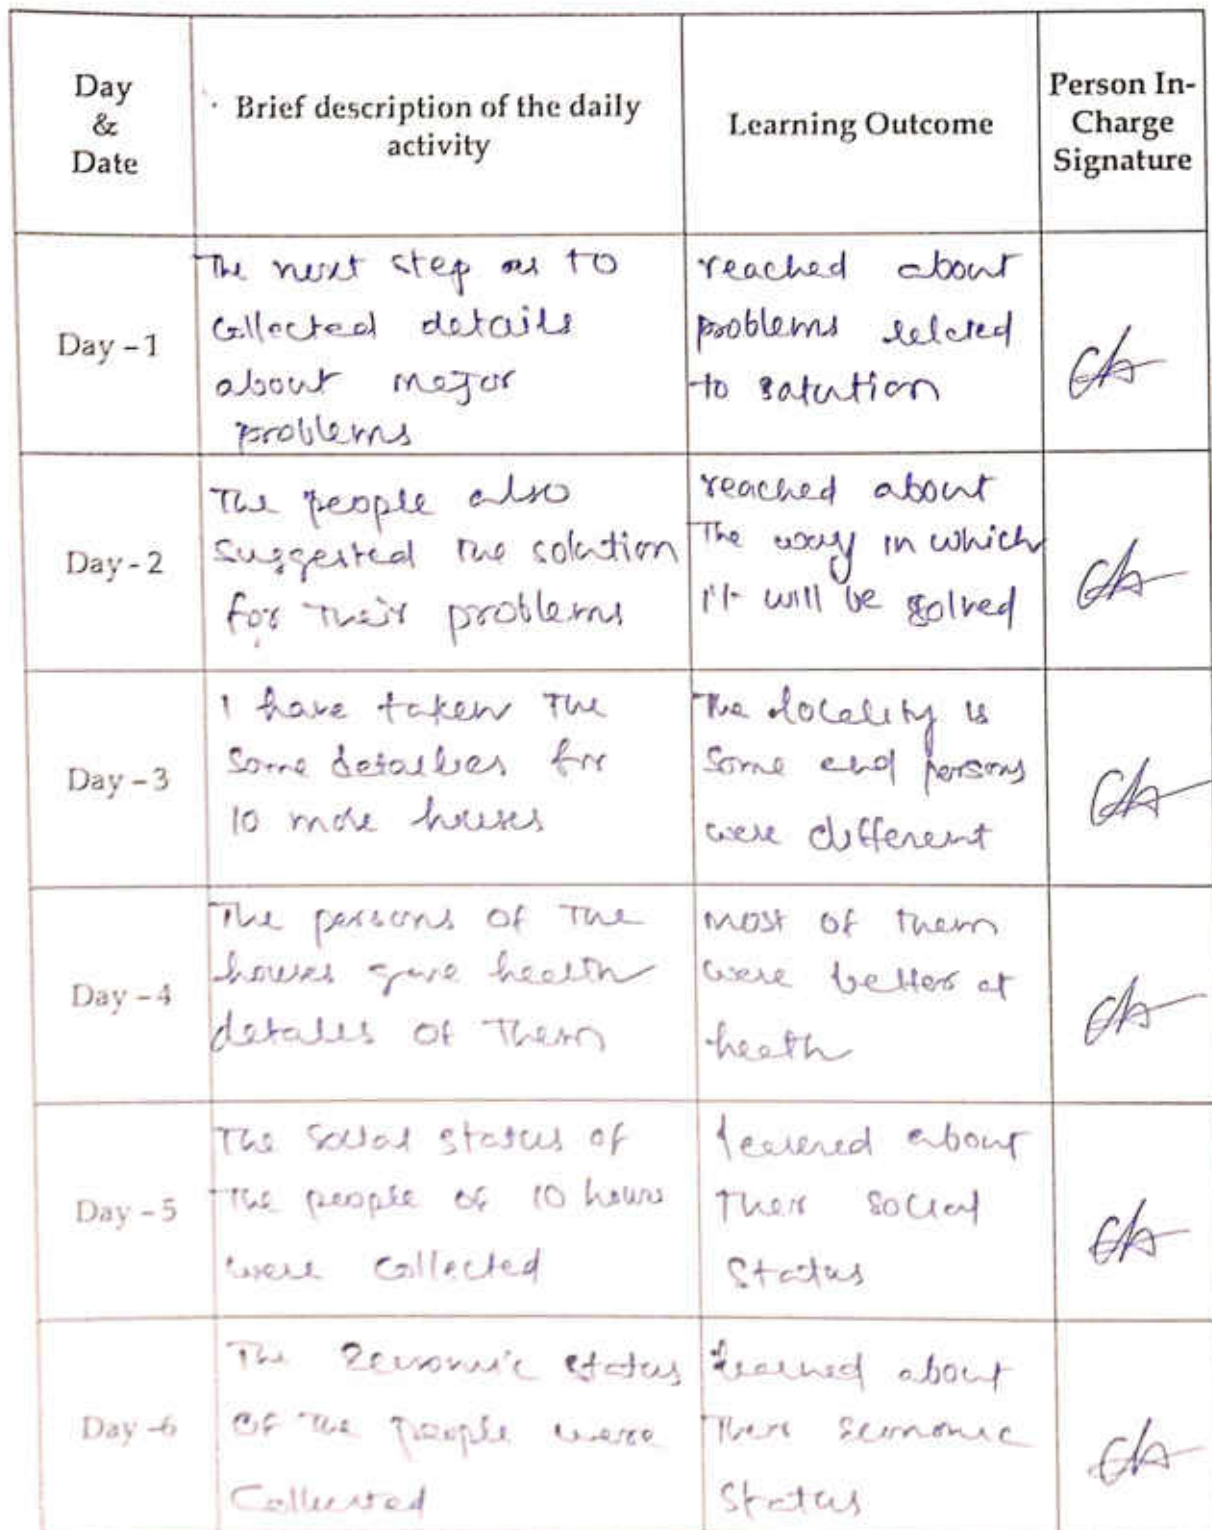 Day
&
Date
Brief description of the daily
activity
Learning Outcome
Person In-
Charge
Signature
Day - 1
The next step as to
Collected details
about major
problems
reached about
problems related
to
Day - 2
The people also
suggested the solution
for their problems
reached about
The way in which
it will be solved
Day - 3
I have taken The
Some for
10 more houses
The locality is
Some and persons
were different
Day - 4
The persons of The
houses gave health
details of Them
most of them
were better at
heath
Day - 5
The Social status of
The people of 10 hours
were Collected
learned about
Their social
Status
Day - 6
The status
of The people were
Collected
learned about
Their
Status